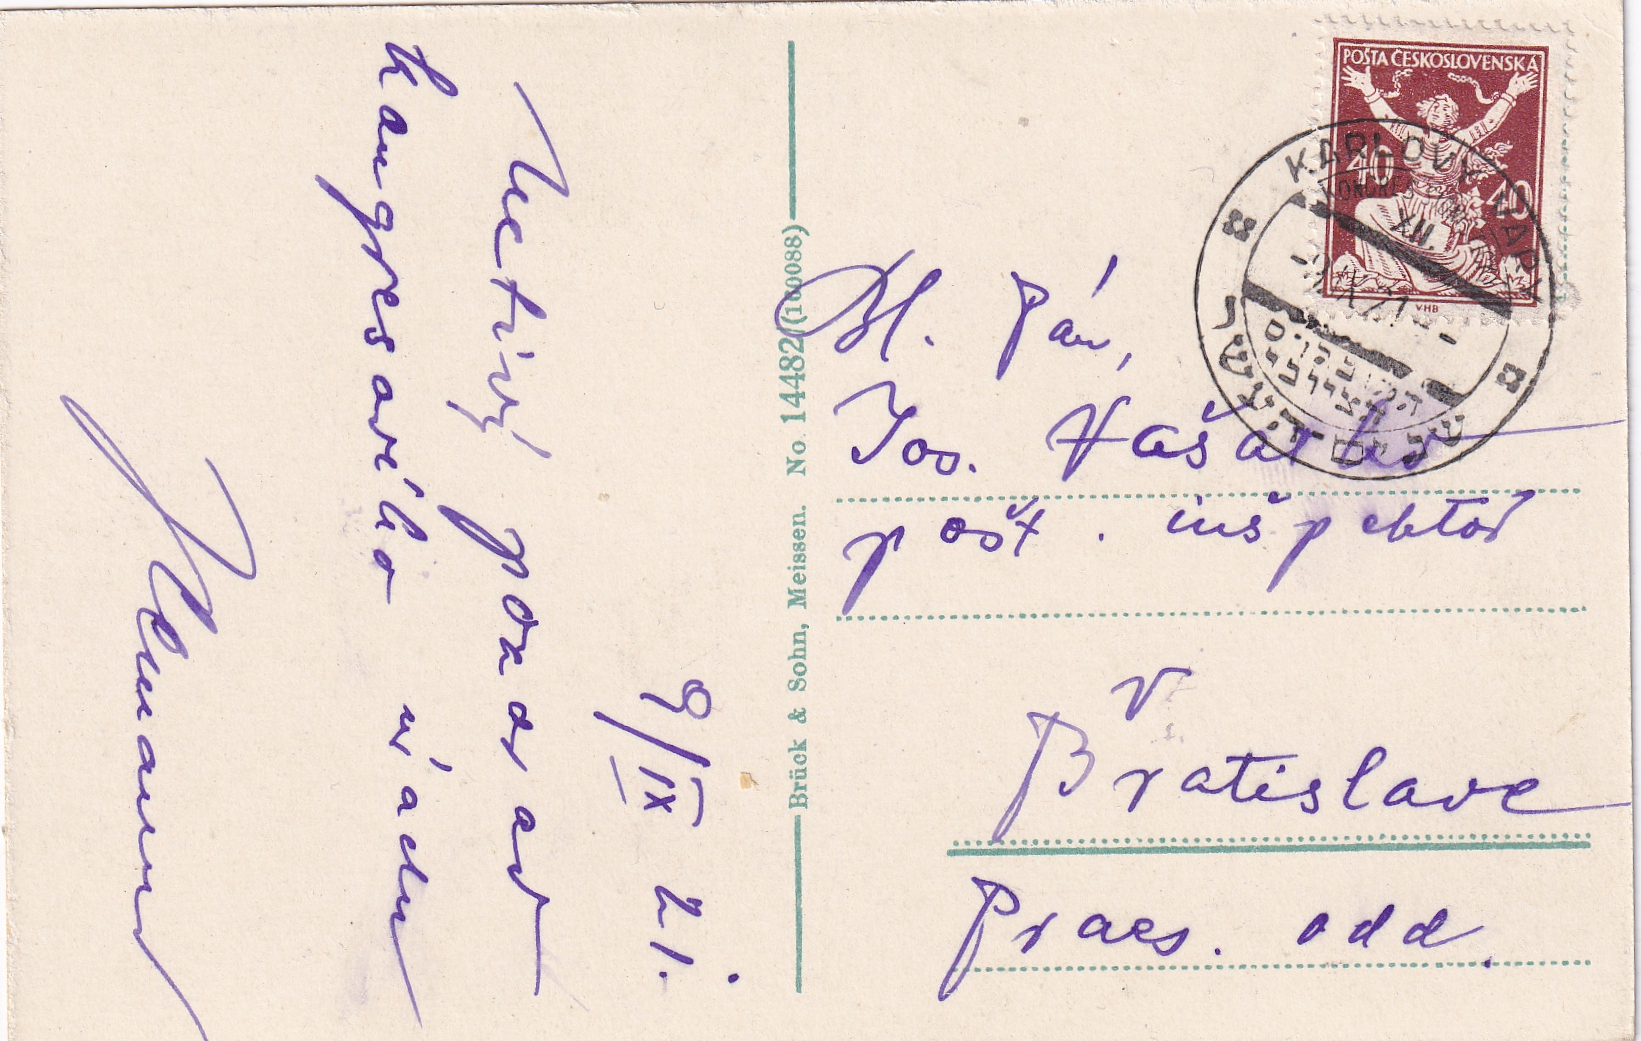 Uctivý pozdrav
kongresového úradu
9/IX 21.
Brück & Sohn, Meissen. No 14482 (160088)
POŠTA ČESKOSLOVENSKÁ
40 40
VHB
KARLOVY VARY
XII.
Bl. Pán,
Jos.
pošt. inšpektor
v
Bratislave
Praes. odd.